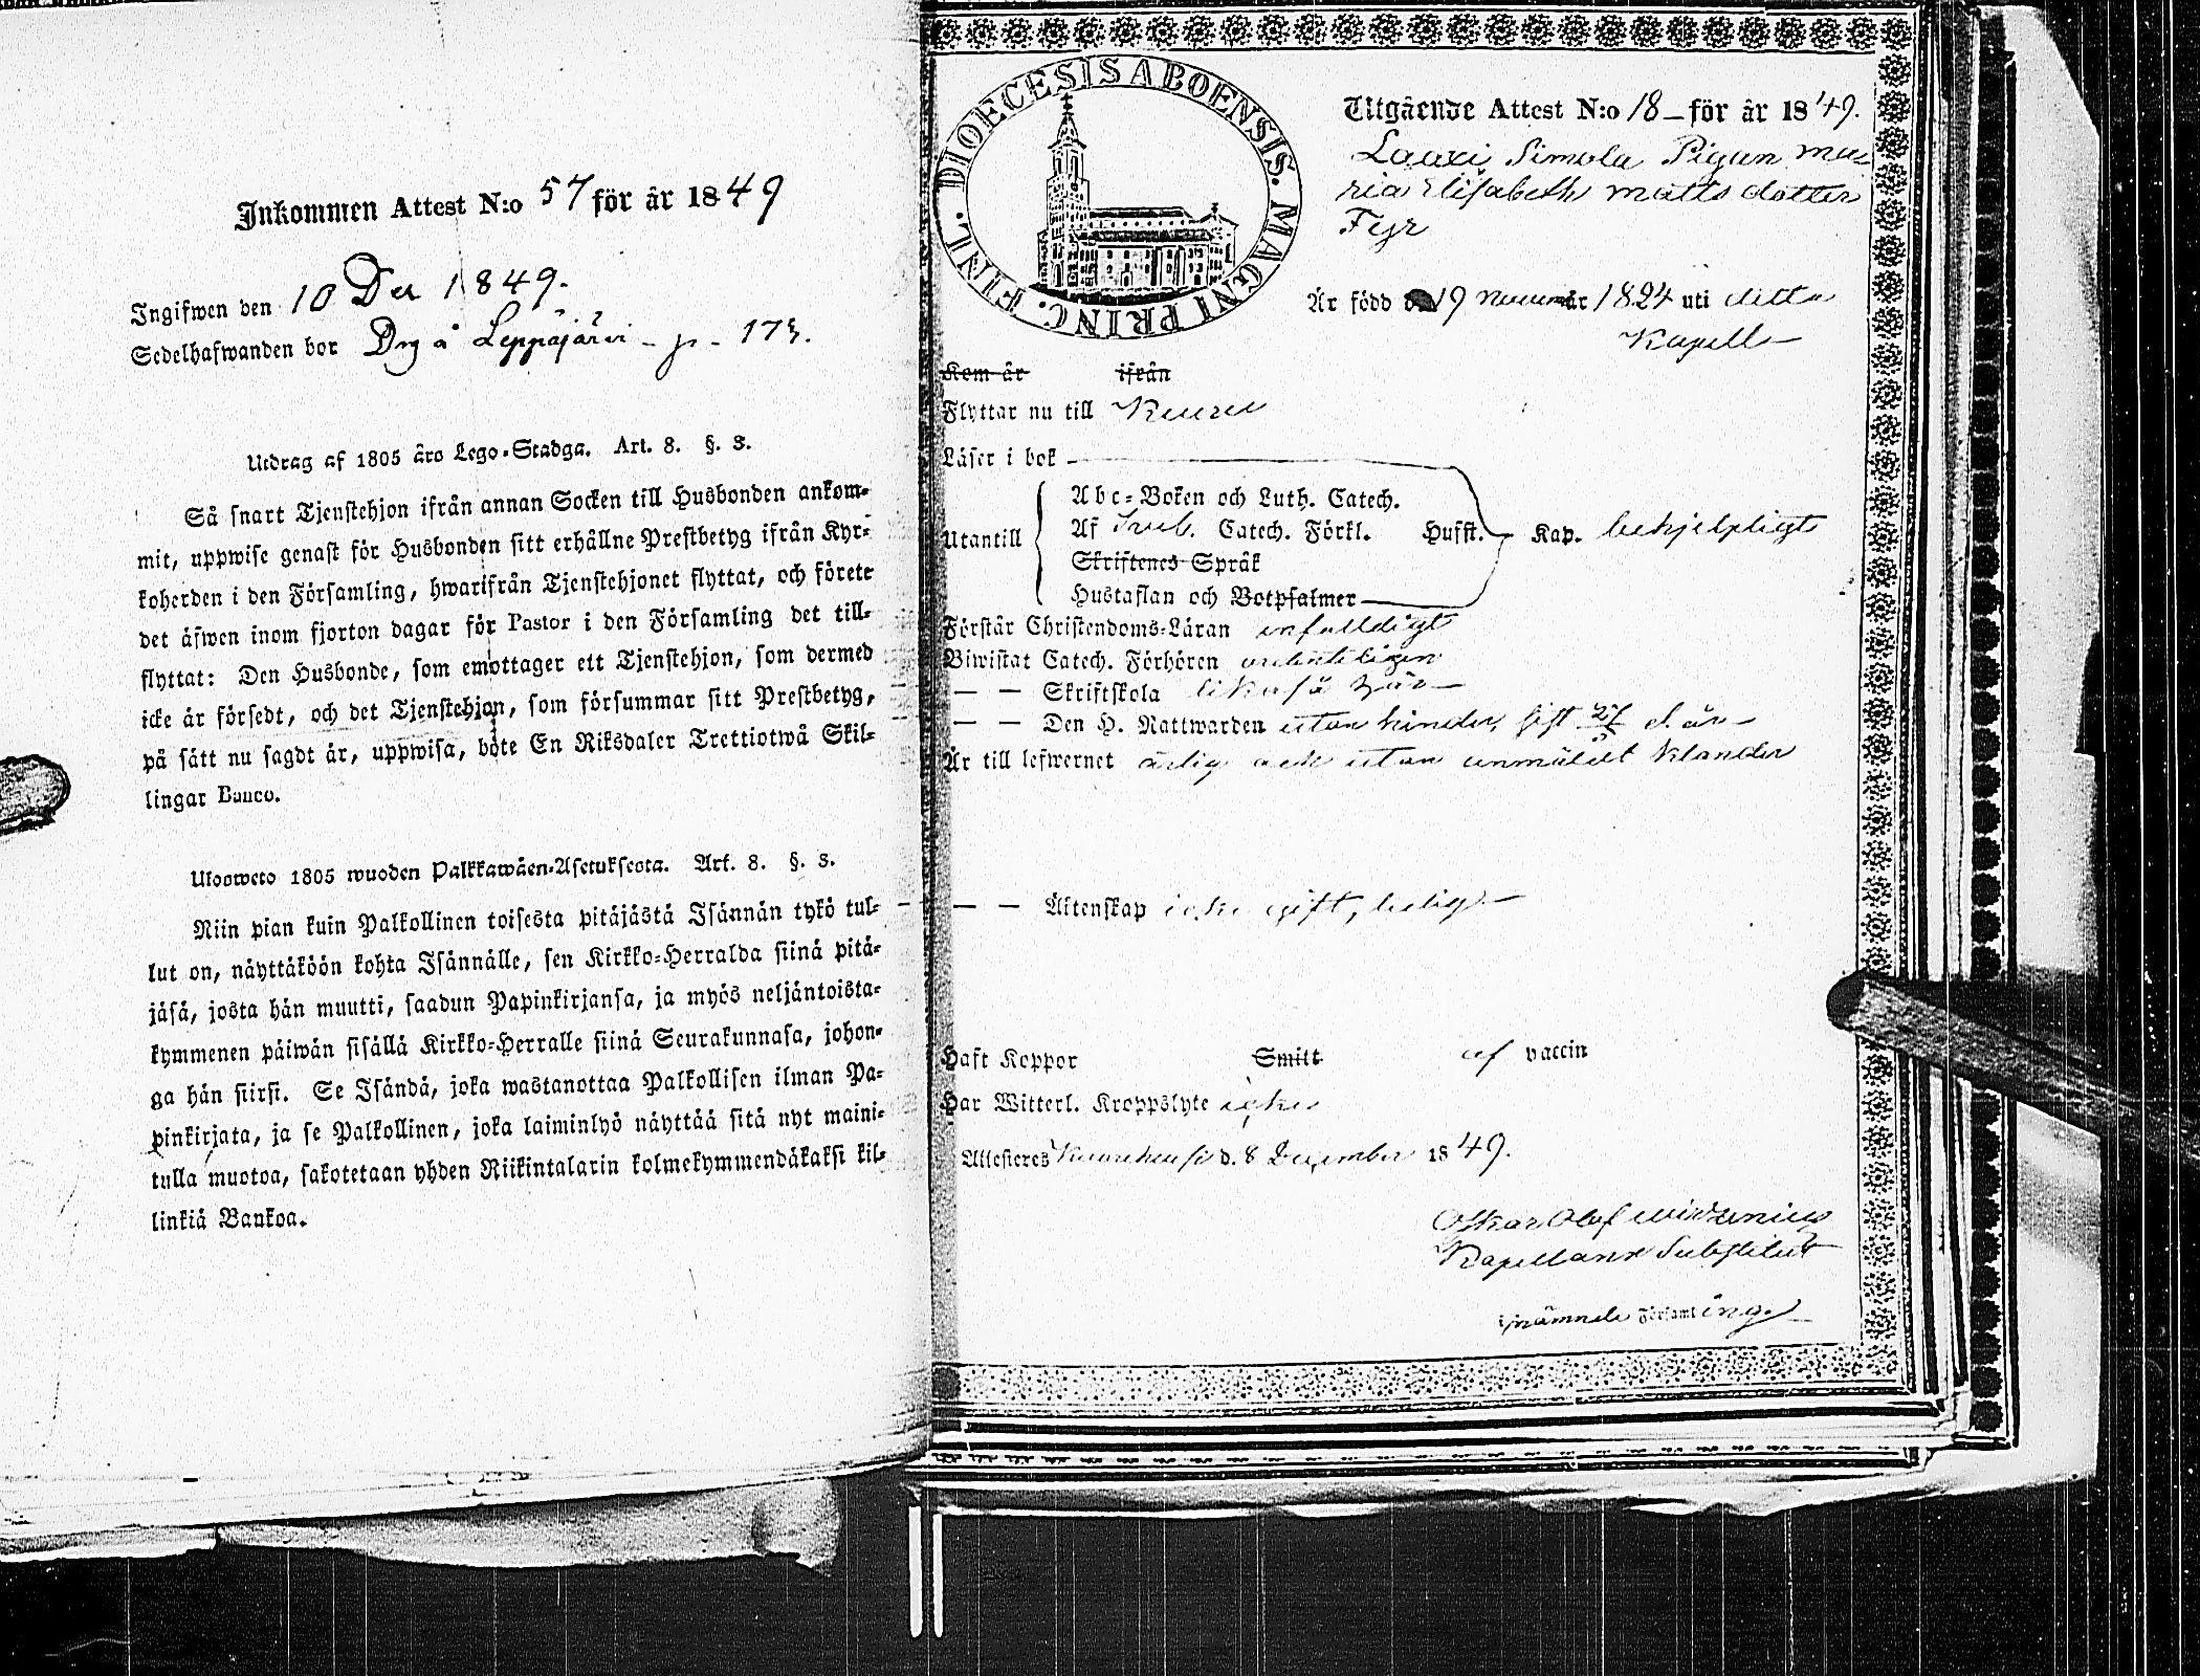 Inkommen Attest N:o 57 för år 1849
Ingifwen den 10 Dec 1849.
Sedelhafwanden bor Drg å Leppäjärvi - p - 173.
Utdrag af 1805 års Lego-Stadga. Art. 8. §. 3.
Så snart Tjenstehjon ifrån annan Socken till Husbonden ankom-
mit, uppwise genast för Husbonden sitt erhållne Prestbetyg ifrån Kyr-
koherden i den Församling, hwarifrån Tjenstehjonet flyttat, och förete
det äfwen inom fjorton dagar för Pastor i den Församling det till-
flyttat: Den Husbonde, som emottager ett Tjenstehjon, som dermed
icke är försedt, och det Tjenstehjon, som försummar sitt Prestbetyg,
på sätt nu sagdt är, uppwisa, böte En Riksdaler Trettiotwå Skil-
lingar Banco.
Ulosweto 1805 wuoden Palkkawäen-Asetuksesta. Art. 8. §. 3.
Niin pian kuin Palkollinen toisesta pitäjästä Isännän tykö tul-
lut on, näyttäköön kohta Isännälle, sen Kirkko-Herralda siinä pitä-
jäsä, josta hän muutti, saadun Papinkirjansa, ja myös neljäntoista-
kymmenen päiwän sisällä Kirkko-Herralle siinä Seurakunnasa, johon-
ga hän siirsi. Se Isändä, joka wastanottaa Palkollisen ilman Pa-
pinkirjata, ja se Palkollinen, joka laiminlyö näyttää sitä nyt maini-
tulla muotoa, sakotetaan yhden Riikintalarin kolmekymmendäkaksi kil-
linkiä Bankoa.
DIOECESIS ABOENSIS. MAGNI PRINC. FINL.
Utgående Attest N:o 18 - för år 1849.
Laaxi Simola Pigan Ma-
ria Elisabeth Matts dotter
Fyr
Är född d 19 Novem år 1824 uti detta
Kapell
Kom år ifrån
Flyttar nu till
Läser i bok
Utantill
Abc-Boken och Luth. Catech.
Af Sveb. Catech. Förkl. Husst. Kap. behjelpligt
Skriftenes Språk
Hustaflan och Botpsalmer
Förstår Christendoms-Läran enfalldigt
Biwistat Catech. Förhören ordenteligen
— — Skriftskola likaså här
— — Den H. Nattwarden utan hinder, sist d. år
Är till lefwernet ärlig och utan anmäldt klander
— — Äktenskap icke gift, ledig.
Haft Koppor Smitt af vaccin
Har Witterl. Kroppslyte icke
Attesteres d. 8 December 1849.
Oskar Olof
Kapellans Substitut
i nämnde Församling